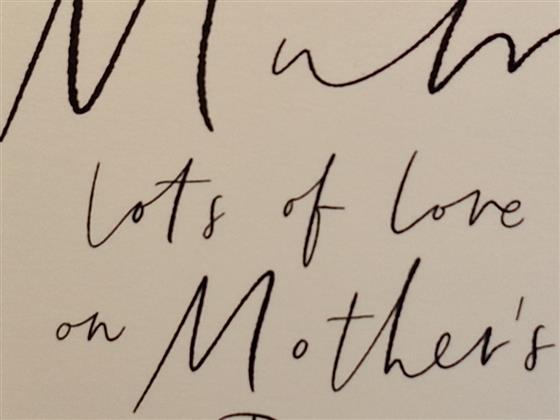 Mum
lots of love
on Mother's